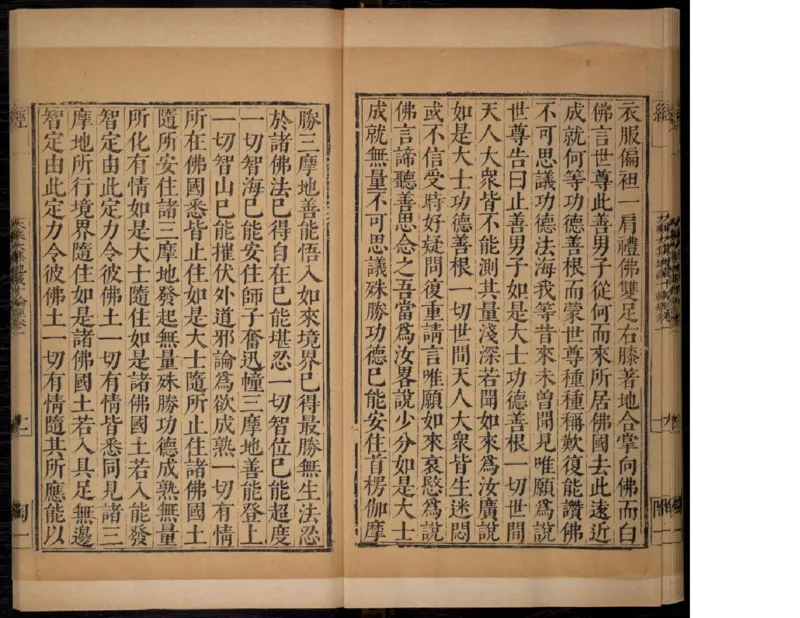 衣服偏袒一肩禮佛雙足右膝著地合掌向佛而白
佛言世尊此善男子從何而來所居佛國去此遠近
成就何等功德善根而蒙世尊種種稱歎復能讚佛
不可思議功德法海我等昔來未曾聞見唯願爲說
世尊告曰止善男子如是大士功德善根一切世間
天人大衆皆不能測其量淺深若聞如來爲汝廣說
如是大士功德善根一切世間天人大衆皆生迷悶
或不信受時好疑問復重請言唯願如來哀愍爲說
佛言諦聽善思念之吾當爲汝畧說少分如是大士
成就無量不可思議殊勝功德已能安住首楞伽摩
勝三摩地善能悟入如來境界已得最勝無生法忍
於諸佛法已得自在已能堪忍一切智位已能超度
一切智海已能安住師子奮迅幢三摩地善能登上
一切智山已能摧伏外道邪論爲欲成熟一切有情
所在佛國悉皆止住如是大士隨所止住諸佛國土
隨所安住諸三摩地發起無量殊勝功德成熟無量
所化有情如是大士隨住如是諸佛國土若入能發
智定由此定力令彼佛土一切有情皆悉同見諸三
摩地所行境界隨住如是諸佛國土若入具足無邊
智定由此定力令彼佛土一切有情隨其所應能以
經